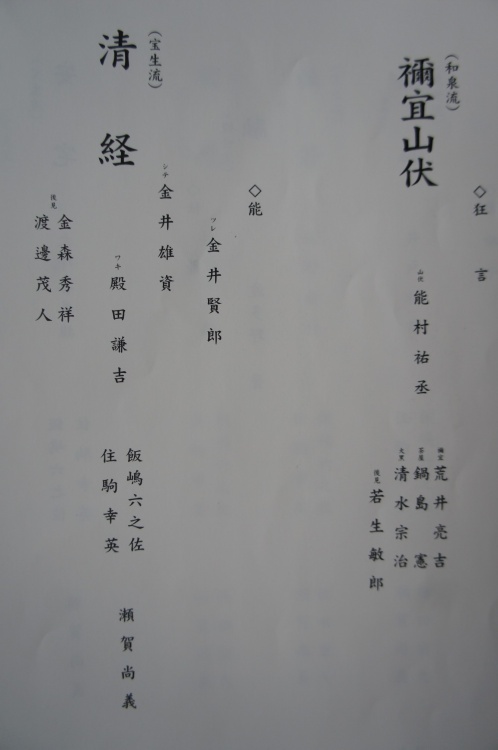 ◇狂言
(和泉流)
禰宜山伏
山伏 能村祐丞
禰宜 荒井亮吉
茶屋 鍋島憲
大黒 清水宗治
後見 若生敏郎
◇能
ツレ 金井賢郎
シテ 金井雄資
(宝生流)
清経
ワキ 殿田謙吉
飯嶋六之佐
住駒幸英
瀬賀尚義
後見 金森秀祥
渡邊茂人